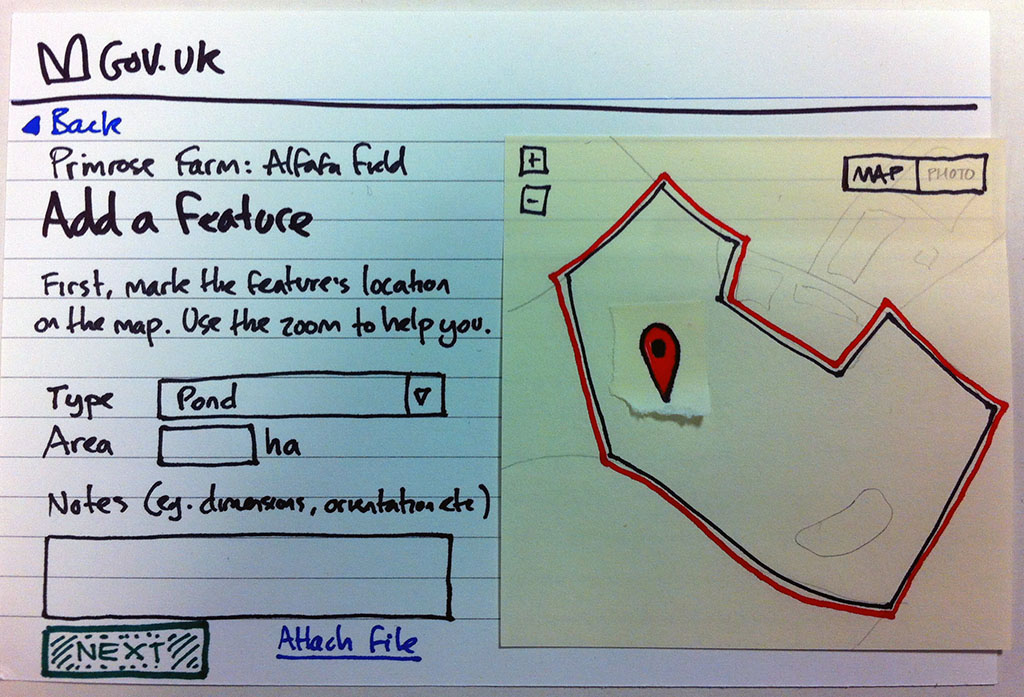 GOV.UK
Back
Primrose Farm: Alfafa Field
Add a Feature
First, mark the feature's location
on the map. Use the zoom to help you.
Type Pond
Area ha
Notes (eg. dimensions, orientation etc)
NEXT Attach File
+
-
MAP PHOTO